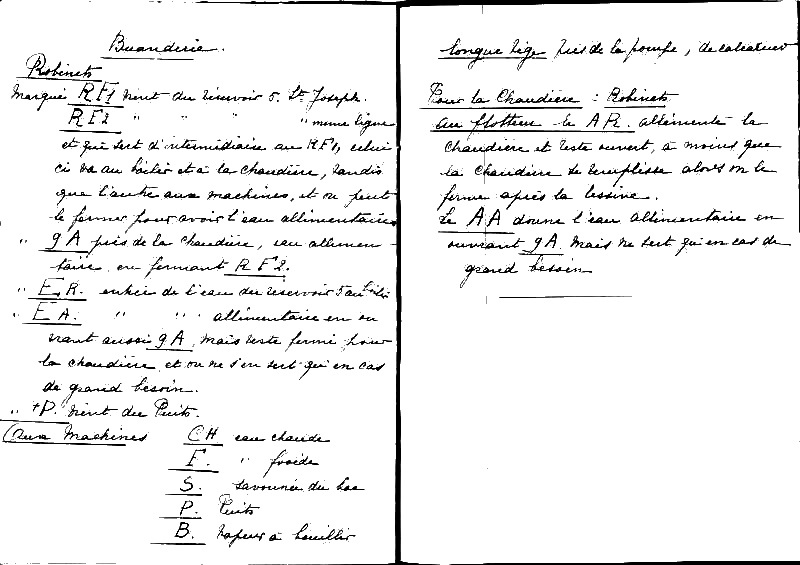 Buanderie.
Robinets
Marqué RF1 vient du réservoir 5. St Joseph.
RF2 " " " " même ligne
et qui sert d'intermédiaire au RF1, celui
ci va au boîlier et à la chaudière, tandis
que l'autre aux machines, et on peut
le fermer pour avoir l'eau allimentaire
" 9A près de la chaudière, eau allimen-
taire en fermant RF2.
" E.R. entrée de l'eau du réservoir 5 au
" E A. " " " allimentaire en ou
vrant aussi 9A, mais reste fermé pour
la chaudière et on ne s'en sert qu'en cas
de grand besoin.
" +P. vient du Puits.
(aux Machines CH eau chaude
F. " froide
S. savonnée du bac
P. Puits
B. Vapeur à bouillir
longue tige près de la pompe,
Pour la Chaudière : Robinets
au flotteur le AR. allimente la
chaudière et reste ouvert, à moins que
la chaudière se remplisse alors on le
ferme après la lessive.
Le AA donne l'eau allimentaire en
ouvrant 9A. Mais ne sert qu'en cas de
grand besoin